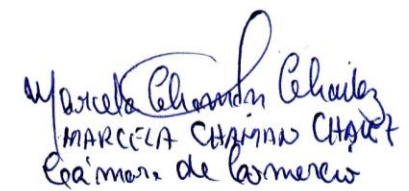 Marcela Chaman Chavez
MARCELA CHAMAN CHAVEZ
Cámara de Comercio